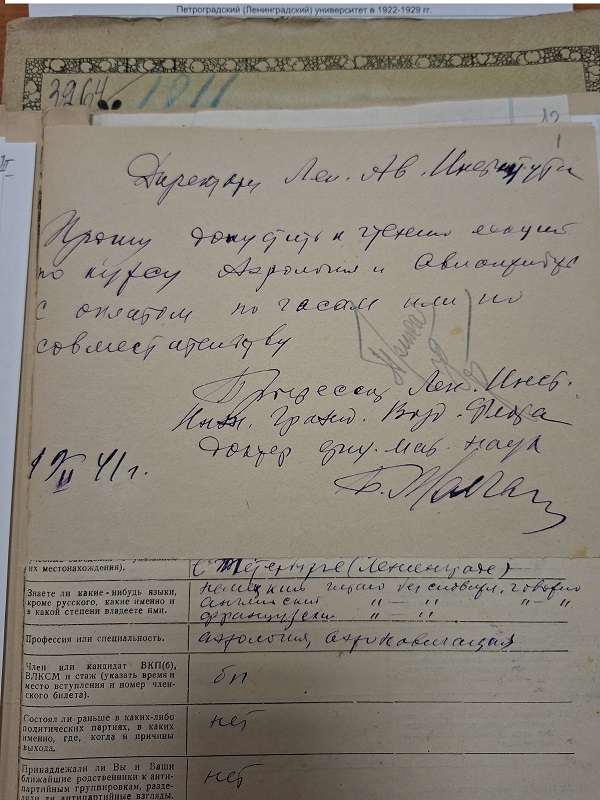 Петроградский (Ленинградский) университет в 1922-1929 гг.
3264
1811
12
1
Директору Лен. Ав. Института
Прошу допустить к чтению лекций
по курсу Аэрология и Авиаприборы
с оплатой по часам или по
совместительству
Профессор Лен. Инст.
Инж. Гражд. Возд. Флота
доктор физ. мат. наук
19/II 41 г.
их местонахождения).
С Петербурге (Ленинграде)
Знаете ли какие-нибудь языки,
кроме русского, какие именно и
в какой степени владеете ими.
немецким читаю без словаря, говорю
английский " — " " — "
французский " — "
Профессия или специальность.
аэрология, аэронавигация
Член или кандидат ВКП(б),
ВЛКСМ и стаж (указать время и
место вступления и номер член-
ского билета).
бп
Состоял ли раньше в каких-либо
политических партиях, в каких
именно, где, когда и причины
выхода.
нет
Принадлежали ли Вы и Ваши
ближайшие родственники к анти-
партийным группировкам, разде-
ляли ли антипартийные взгляды.
нет